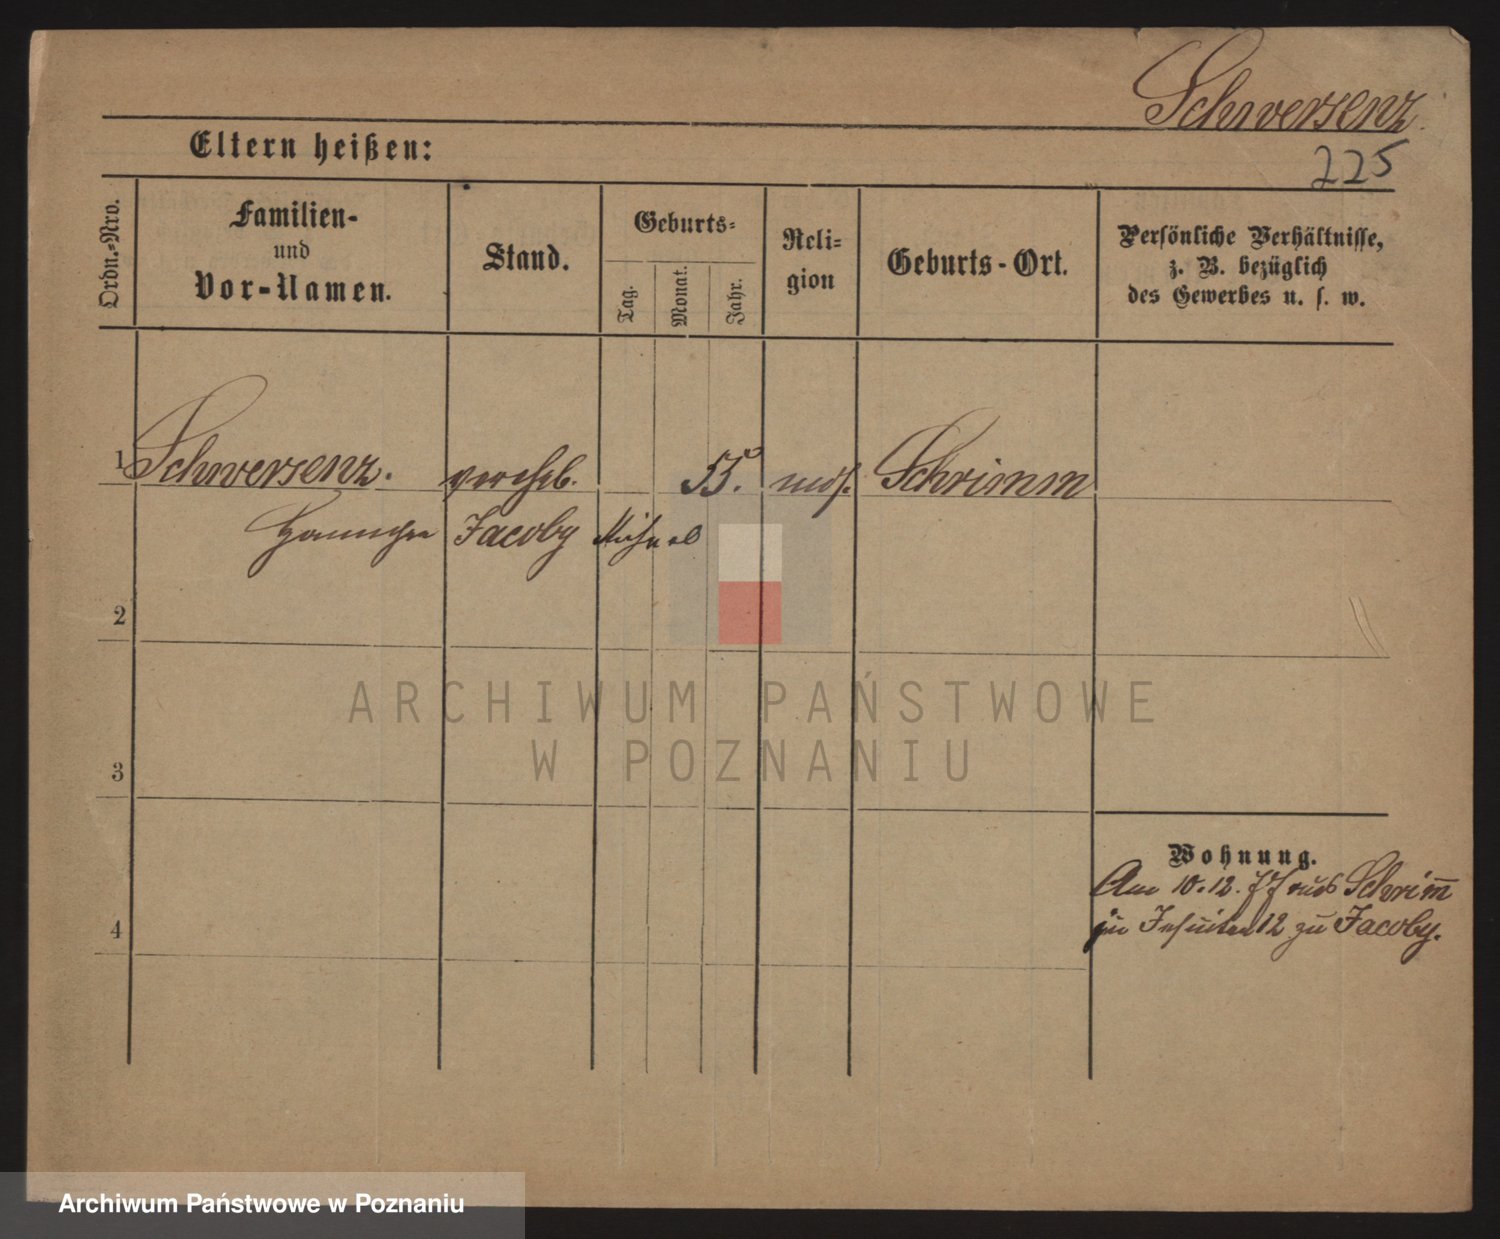 Schwersenz
225
Eltern heißen:
Ordn.-Nro.
Familien-
und
Vor-Namen.
Stand.
Geburts-
Tag.
Monat.
Jahr.
Reli-
gion
Geburts-Ort.
Persönliche Verhältnisse,
z. B. bezüglich
des Gewerbes u. s. w.
1 Schwersenz. verehl. 55. mos. Schrimm
Jacoby Michael
2
3
4
Wohnung.
Am 10.12.77 aus Schrim̅
Jesuiten 12 zu Jacoby.
ARCHIWUM PAŃSTWOWE
W POZNANIU
Archiwum Państwowe w Poznaniu